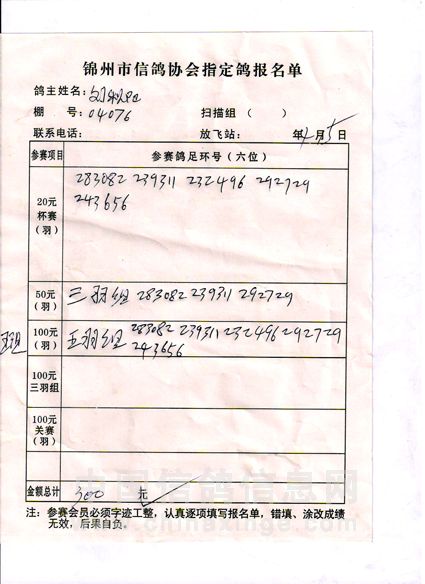 锦州市信鸽协会指定鸽报名单
鸽主姓名：刘
棚 号：04076 扫描组（ ）
联系电话： 放飞站： 年4月5日
参赛项目 参赛鸽足环号（六位）
20元杯赛（羽） 283082 239311 232496 292729
243656
50元（羽） 三羽组 283082 239311 292729
100元（羽） 五羽组 283082 239311 232496 292729
243656
100元三羽组
100元关赛（羽）
金额总计 300 元
中国信鸽信息网
www.chinaxinge.com
注：参赛会员必须字迹工整，认真逐项填写报名单，错填、涂改成绩
无效，后果自负。